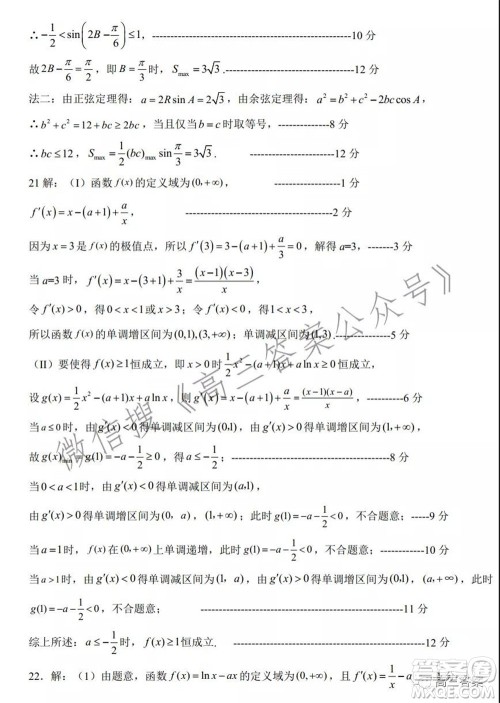 ∴-1/2<sin(2B-π/6)≤1,------------------------------------------10 分
故 2B-π/6=π/2，即 B=π/3 时，S_max=3√3.---------------------------12 分
法二：由正弦定理得：a=2R sin A=2√3，由余弦定理得：a²=b²+c²-2bc cos A，
∴b²+c²=12+bc≥2bc，当且仅当 b=c 时取等号，-------------8 分
∴bc≤12，S_max=1/2(bc)_max sin π/3=3√3. ------------------12 分
21 解：（I）函数 f(x) 的定义域为 (0,+∞)， --------------------1 分
f′(x)=x-(a+1)+a/x， ------------------------2 分
因为 x=3 是 f(x) 的极值点，所以 f′(3)=3-(a+1)+a/3=0，解得 a=3，-------3 分
当 a=3 时，f′(x)=x-(3+1)+3/x=(x-1)(x-3)/x，
令 f′(x)>0，得 0<x<1 或 x>3；令 f′(x)<0，得 1<x<3，
所以函数 f(x) 的单调增区间为 (0,1),(3,+∞)；单调减区间为 (1,3).---------------5 分
（II）要使得 f(x)≥1 恒成立，即 x>0 时 1/2x²-(a+1)x+a ln x≥0 恒成立，
设 g(x)=1/2x²-(a+1)x+a ln x，则 g′(x)=x-(a+1)+a/x=(x-1)(x-a)/x，---------6 分
当 a≤0 时，由 g′(x)<0 得单调减区间为 (0,1)，由 g′(x)>0 得单调增区间为 (1,+∞)，
故 g(x)_min=g(1)=-a-1/2≥0，得 a≤-1/2； ---------------------8 分
当 0<a<1 时，由 g′(x)<0 得单调减区间为 (a,1)，
由 g′(x)>0 得单调增区间为 (0,a)，(1,+∞)；此时 g(1)=-a-1/2<0，不合题意；-----9 分
当 a=1 时，f(x) 在 (0,+∞) 上单调递增，此时 g(1)=-a-1/2<0，不合题意；----10 分
当 a>1 时，由 g′(x)<0 得单调减区间为 (1,a)，由 g′(x)>0 得单调增区间为 (0,1)，(a,+∞)，此时
g(1)=-a-1/2<0，不合题意； ---------------------------11 分
综上所述：a≤-1/2 时，f(x)≥1 恒成立. ---------------------------12 分
22．解：（1）由题意，函数 f(x)=ln x-ax 的定义域为 (0,+∞)，且 f′(x)=1/x-a
微信搜《高三答案公众号》
高三答案